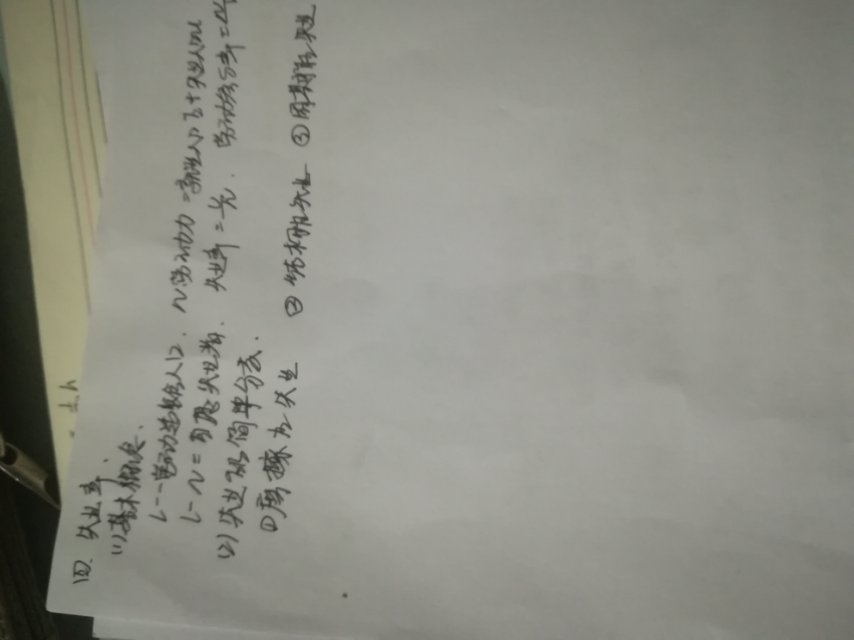 四、失业率.
(1)基本概念.
L--劳动适龄人口. N劳动力=就业人口+失业人口
L-N=自愿失业者. 失业率= 劳动参与率=
(2)失业的简单分类.
①摩擦性失业 ②结构性失业 ③周期性失业